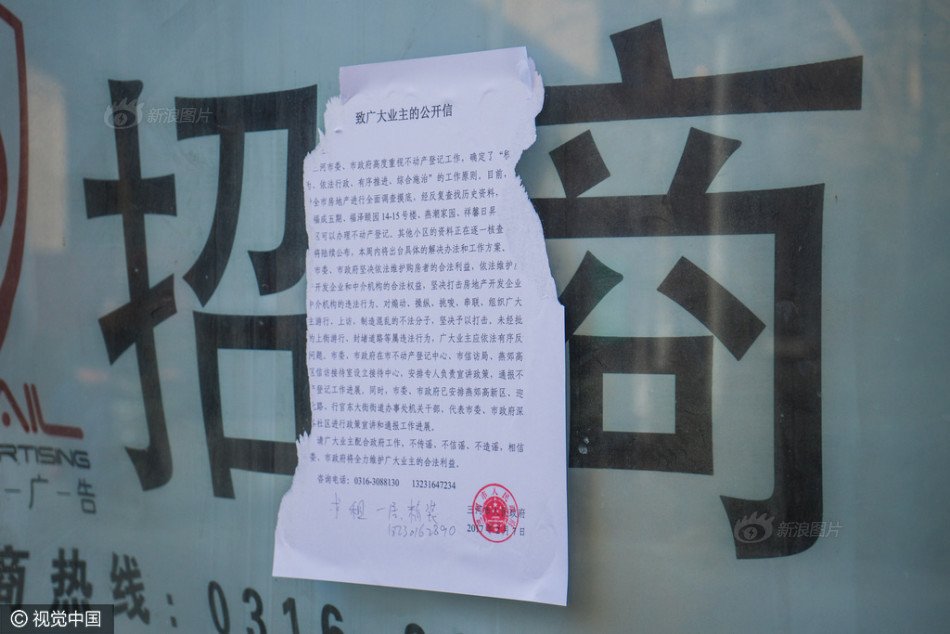 招商
新浪图片
致广大业主的公开信
河市委、市政府高度重视不动产登记工作,确定了“
、依法行政、有序推进、综合施治”的工作原则。目前,
全市房地产进行全面调查摸底,经反复查找历史资料,
福成五期、福泽颐园 14-15 号楼、燕潮家园、祥馨日昇
可以办理不动产登记、其他小区的资料正在逐一核查
将陆续公布,本周内将出台具体的解决办法和工作方案。
市委、市政府坚决依法维护购房者的合法利益,依法维护
开发企业和中介机构的合法权益,坚决打击房地产开发企业
中介机构的违法行为。对煽动、操纵、挑唆、串联、组织广大
主游行、上访,制造混乱的不法分子,坚决予以打击。未经批
上街游行、封堵道路等属违法行为,广大业主应依法有序反
问题。市委、市政府在市不动产登记中心、市信访局、燕郊高
区信访接待室设立接待中心,安排专人负责宣讲政策,通报不
产登记工作进展。同时,市委、市政府已安排燕郊高新区、迎
路、行宫东大街街道办事处机关干部,代表市委、市政府深
社区进行政策宣讲和通报工作进展。
请广大业主配合政府工作,不传谣、不信谣、不造谣,相信
委、市政府将全力维护广大业主的合法利益。
咨询电话:0316-3088130 13231647234
租 一居 精装
三 政府
2017年 月7日
AIL
RTISING
广-告
商热线:0316
新浪图片
© 视觉中国